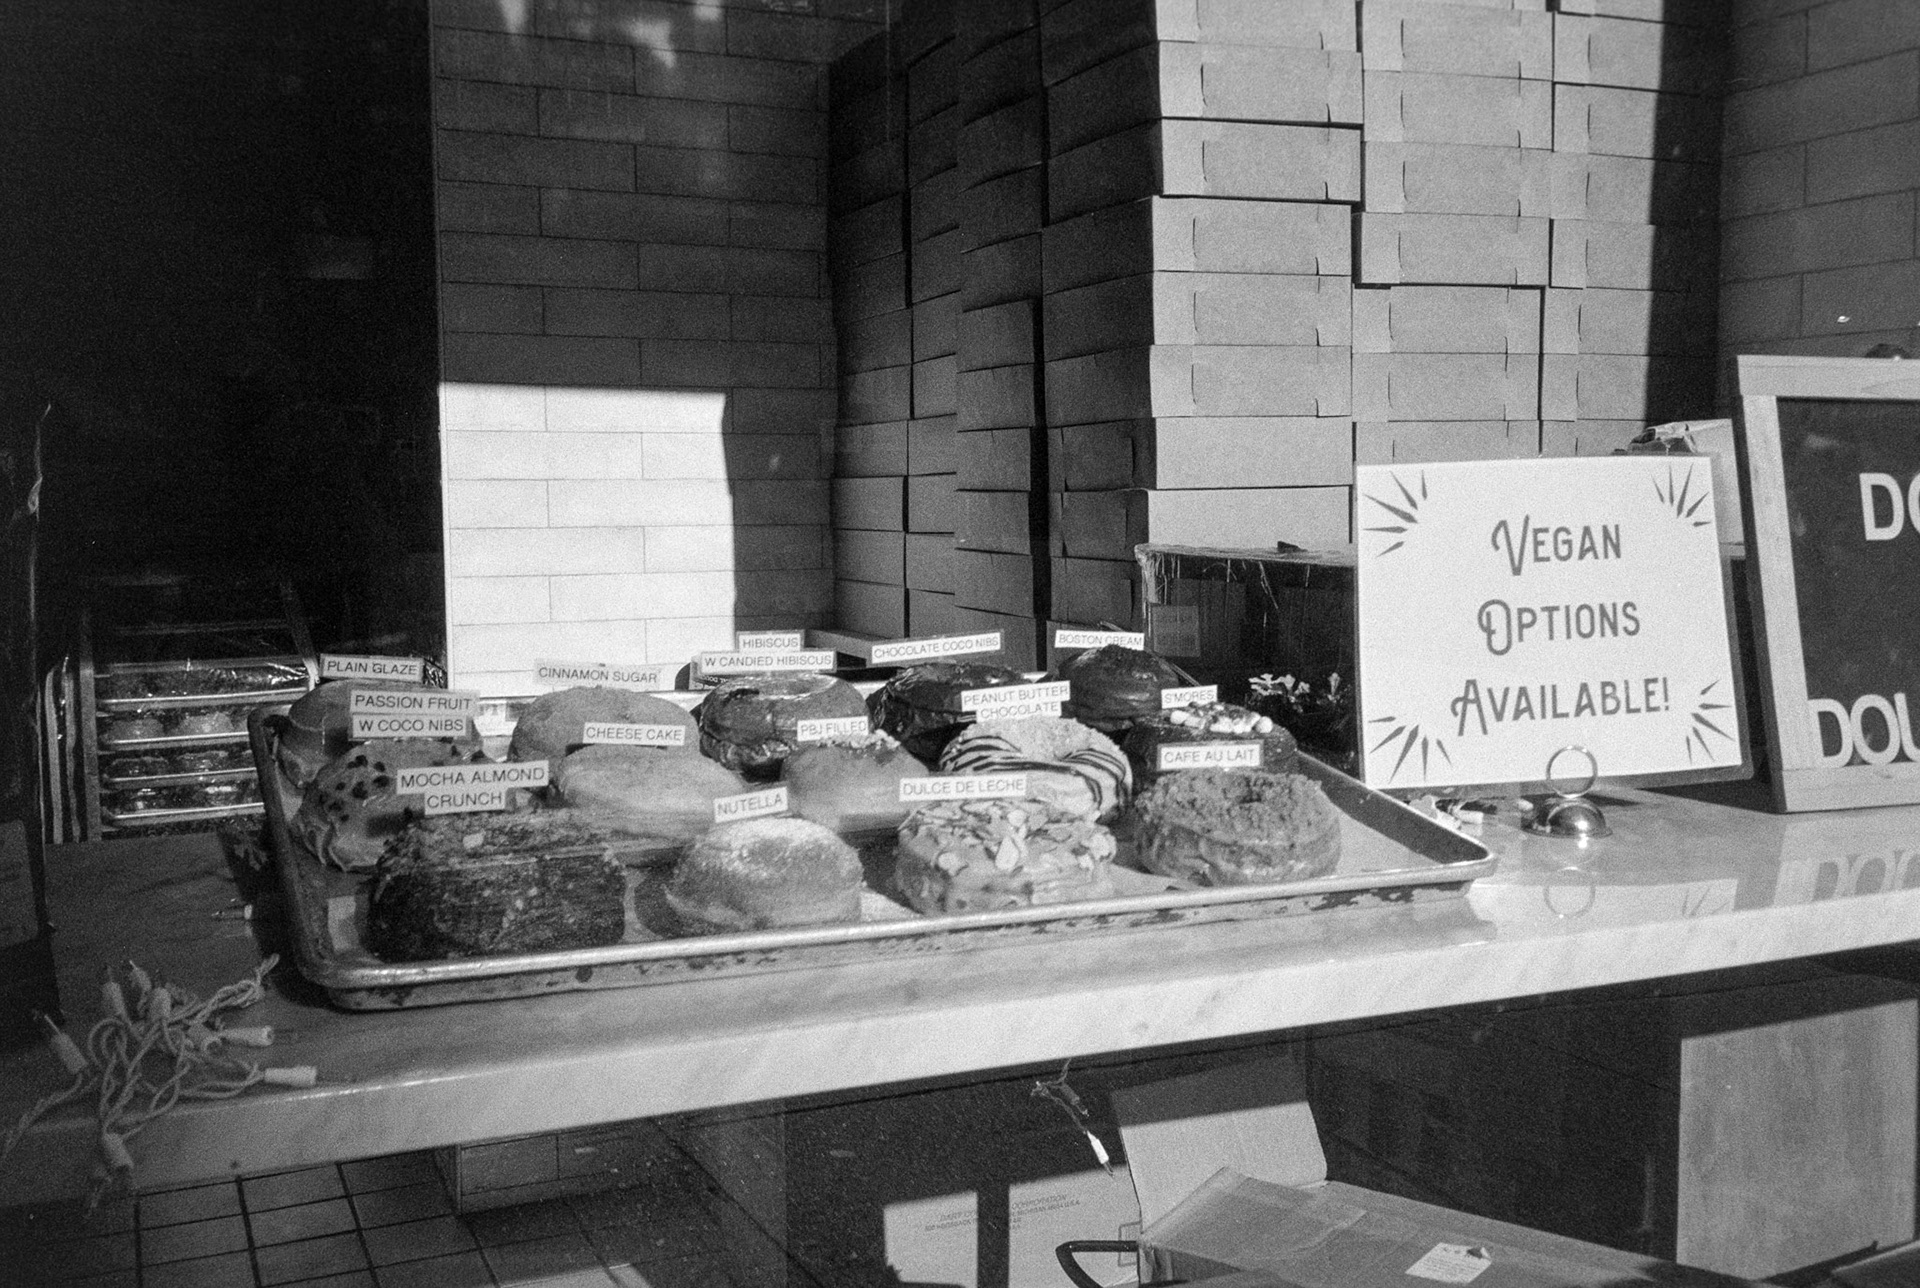 PLAIN GLAZE
PASSION FRUIT
W COCO NIBS
MOCHA ALMOND
CRUNCH
CINNAMON SUGAR
CHEESE CAKE
NUTELLA
HIBISCUS
W CANDIED HIBISCUS
PBJ FILLED
CHOCOLATE COCO NIBS
DULCE DE LECHE
PEANUT BUTTER
CHOCOLATE
BOSTON CREAM
S'MORES
CAFE AU LAIT
VEGAN
OPTIONS
AVAILABLE!
DO
DOU